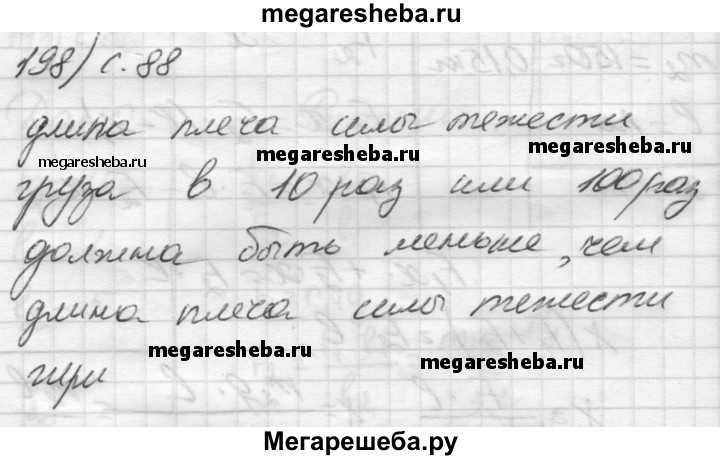 megaresheba.ru
198) с. 88
длина плеча силы тежести
megaresheba.ru megaresheba.ru
груза в 10 раз или 100 раз
должна быть меньше, чем
длина плеча силы тежести
megaresheba.ru megaresheba.ru
гири
Мегарешеба.ру